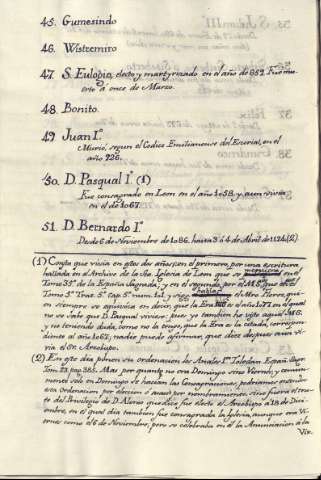 45. Gumesindo
46. Wistremiro
47. S. Eulogio, electo y martyrizado en el año de 859. Fue mu-
erto á once de Marzo.
48. Bonito.
49 Juan I.º
Murió, segun el Codice Emilianense del Escorial, en el
año 926.
50. D. Pasqual I.º (1)
Fue consagrado en Leon en el año 1058. y aun vivia
en el de 1067.
51. D. Bernardo I.º
Desde 6 de Noviembre de 1086. hasta 3 ó 4 de Abril de 1124. (2)
(1) Consta que vivia en estos dos años; en el primero, por una escritura
hallada en el Archivo de la Sta. Iglesia de Leon que se menciona en el
Tomo 35.º de la España Sagrada; y en el segundo por el M.S. que en el
Tomo 5.º Trat. 5. cap. 5. num. 141. y sigs. el Mro. Florez qui-
en siempre se equivoca en decir, que la Era es el año 1077 en el qual
no se sabe que D. Pasqual viviese: pues yo tambien he visto aquel M.S.
y no teniendo duda, como no la tengo, que la Era es la citada, correspon-
diente al año 1067; nadie puede afirmar, que diez despues aun vi-
via el Sr. Arzobispo.
(2) En este dia ponen su ordenacion los Anales 1.os Toledan. España Sagr.
Tom. 23 pag. 385. Mas por quanto no era Domingo sino Viernes, y comun-
mente solo en Domingo se hacian las Consagraciones, podriamos entender
esta ordenacion por eleccion ó acaso por nombramiento, sino fuera el res-
to del Privilegio de D. Alonso que dice fue electo el Arzobispo á 18 de Dici-
embre, en el qual dia tambien fue consagrada la Iglesia, aunque era Vi-
ernes como el 6 de Noviembre, pero se celebraba en él la Anunciacion á la
Vir.